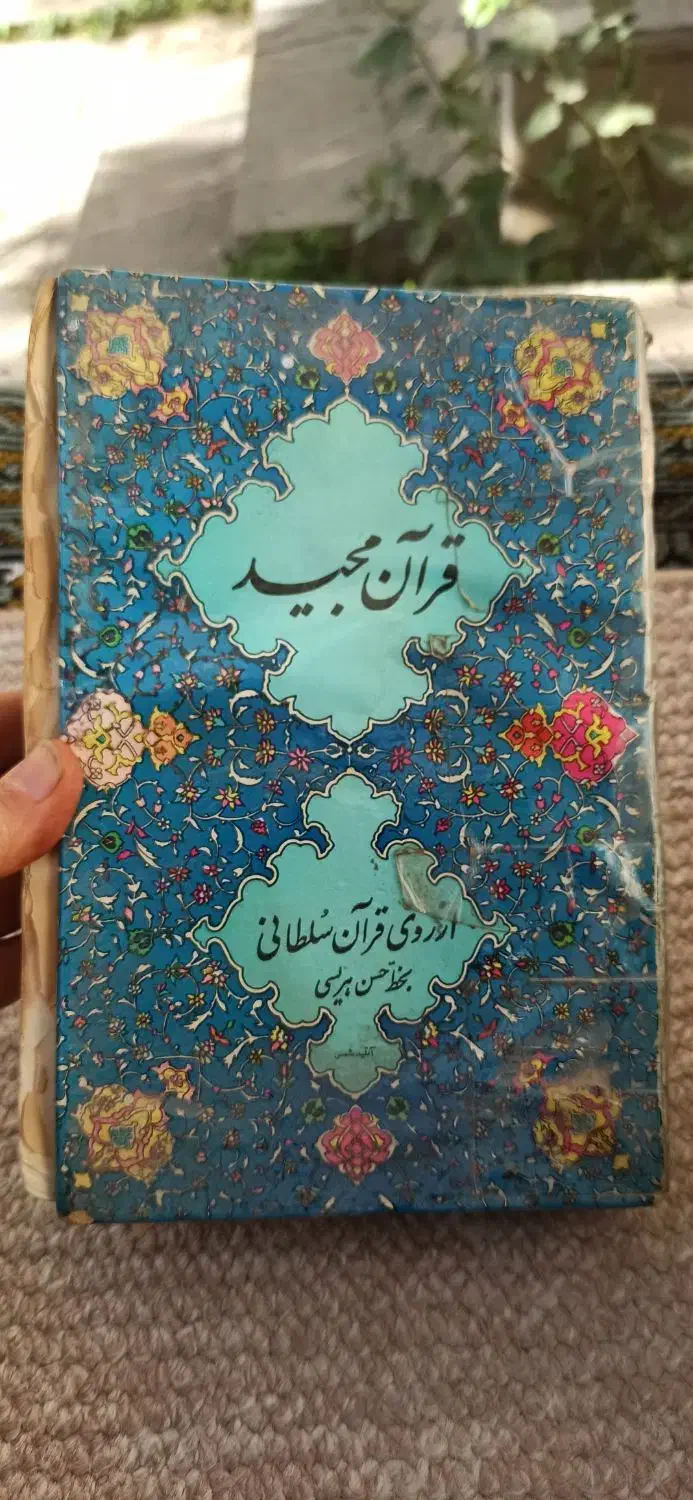 قرآن مجید
از روی قرآن سُلطانی
بخطّ حسن هریسی